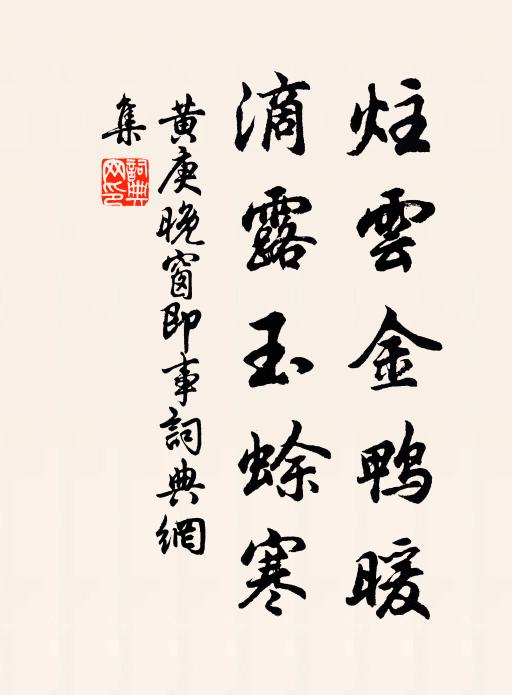 炷雲金鴨暖
滴露玉蜍寒
黃庚晚窗即事詞典網
集
詞典
网印